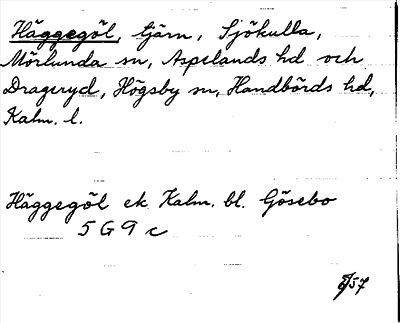 Häggegöl, tjärn, Sjökulla,
Mörlunda sn, Aspelands hd och
Drageryd, Högsby sn, Handbörds hd,
Kalm. l.
Häggegöl ek. Kalm. bl. Gösebo
5 G 9 c
57